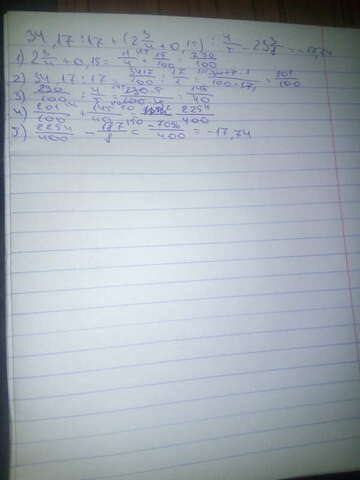 34,17 : 17 + (2 3/4 + 0,15) : 4/5 - 23 3/8 = -17,74
1) 2 3/4 + 0,15 = 11/4 + 15/100 = 290/100
2) 34,17 : 17 = 3417/100 : 17/1 = 3417·1/100·17 = 201/100
3) 290/100 : 4/5 = 290·5/100·4 = 145/40
4) 201/100 + 145/40 = 2254/400
5) 2254/400 - 187/8 = -7096/400 = -17,74